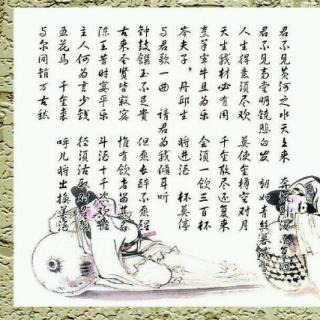 君不见黄河之水天上来 奔流到海不复回
君不见高堂明镜悲白发 朝如青丝暮成雪
人生得意须尽欢 莫使金樽空对月
天生我材必有用 千金散尽还复来
烹羊宰牛且为乐 会须一饮三百杯
岑夫子，丹邱生 将进酒 杯莫停
与君歌一曲 请君为我倾耳听
钟鼓馔玉不足贵 但愿长醉不愿醒
古来圣贤皆寂寞 惟有饮者留其名
陈王昔时宴平乐 斗酒十千恣欢谑
主人何为言少钱 径须沽取对君酌
五花马 千金裘 呼儿将出换美酒
与尔同销万古愁